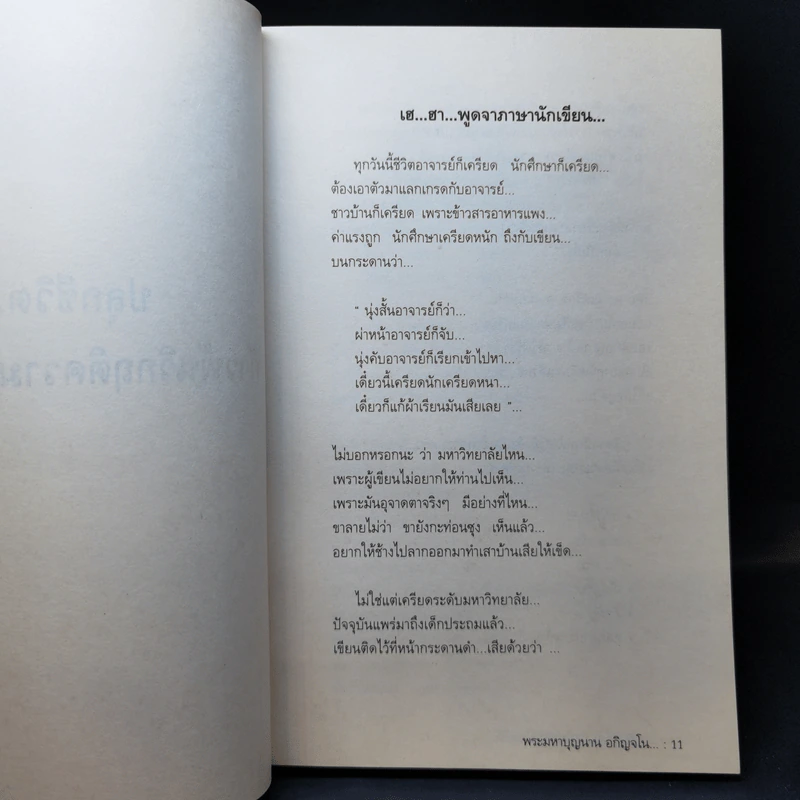 เฮ...ฮา...พูดจาภาษานักเขียน...
ทุกวันนี้ชีวิตอาจารย์ก็เครียด นักศึกษาก็เครียด...
ต้องเอาตัวมาแลกเกรดกับอาจารย์...
ชาวบ้านก็เครียด เพราะข้าวสารอาหารแพง...
ค่าแรงถูก นักศึกษาเครียดหนัก ถึงกับเขียน...
บนกระดานว่า...
" นุ่งสั้นอาจารย์ก็ว่า...
ผ่าหน้าอาจารย์ก็จับ...
นุ่งคับอาจารย์ก็เรียกเข้าไปหา...
เดี๋ยวนี้เครียดนักเครียดหนา...
เดี๋ยวก็แก้ผ้าเรียนมันเสียเลย "...
ไม่บอกหรอกนะ ว่า มหาวิทยาลัยไหน...
เพราะผู้เขียนไม่อยากให้ท่านไปเห็น...
เพราะมันอุจาดตาจริงๆ มีอย่างที่ไหน...
ขาลายไม่ว่า ขายังกะท่อนซุง เห็นแล้ว...
อยากให้ช้างไปลากออกมาทำเสาบ้านเสียให้เข็ด...
ไม่ใช่แต่เครียดระดับมหาวิทยาลัย...
ปัจจุบันแพร่มาถึงเด็กประถมแล้ว...
เขียนติดไว้ที่หน้ากระดานดำ...เสียด้วยว่า ...
พระมหาบุญนาน อกิญจโน... : 11